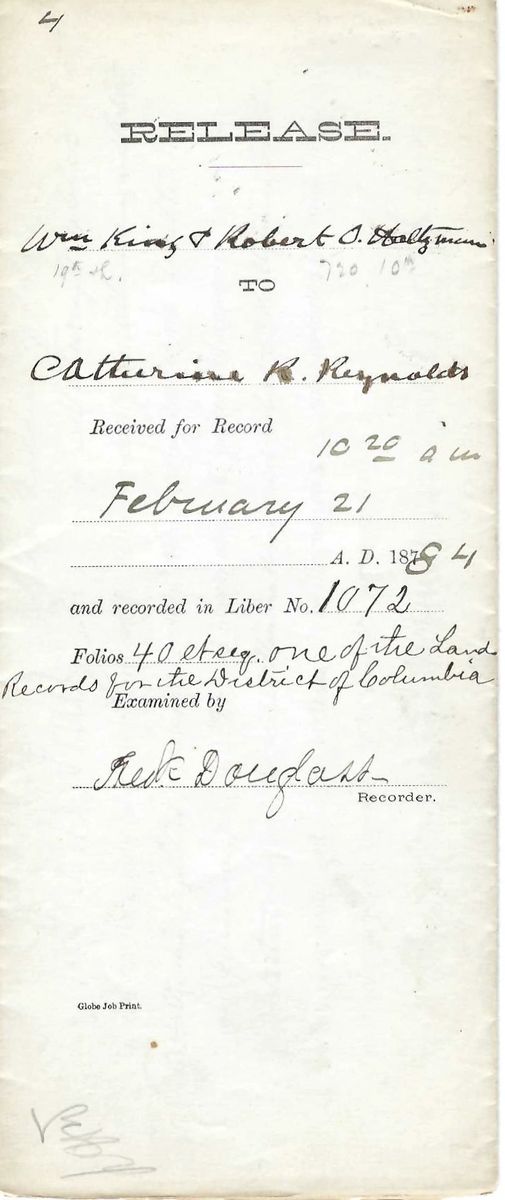 4
RELEASE.
Wm King & Robert O. Holtzman
19th st. 720 10th
TO
Catherine R. Reynolds
Received for Record
10 20 a m
February 21
A. D. 1884
and recorded in Liber No. 1072
Folios 40 et seq. one of the Land
Records for the District of Columbia
Examined by
Fredk Douglass
Recorder.
Globe Job Print.